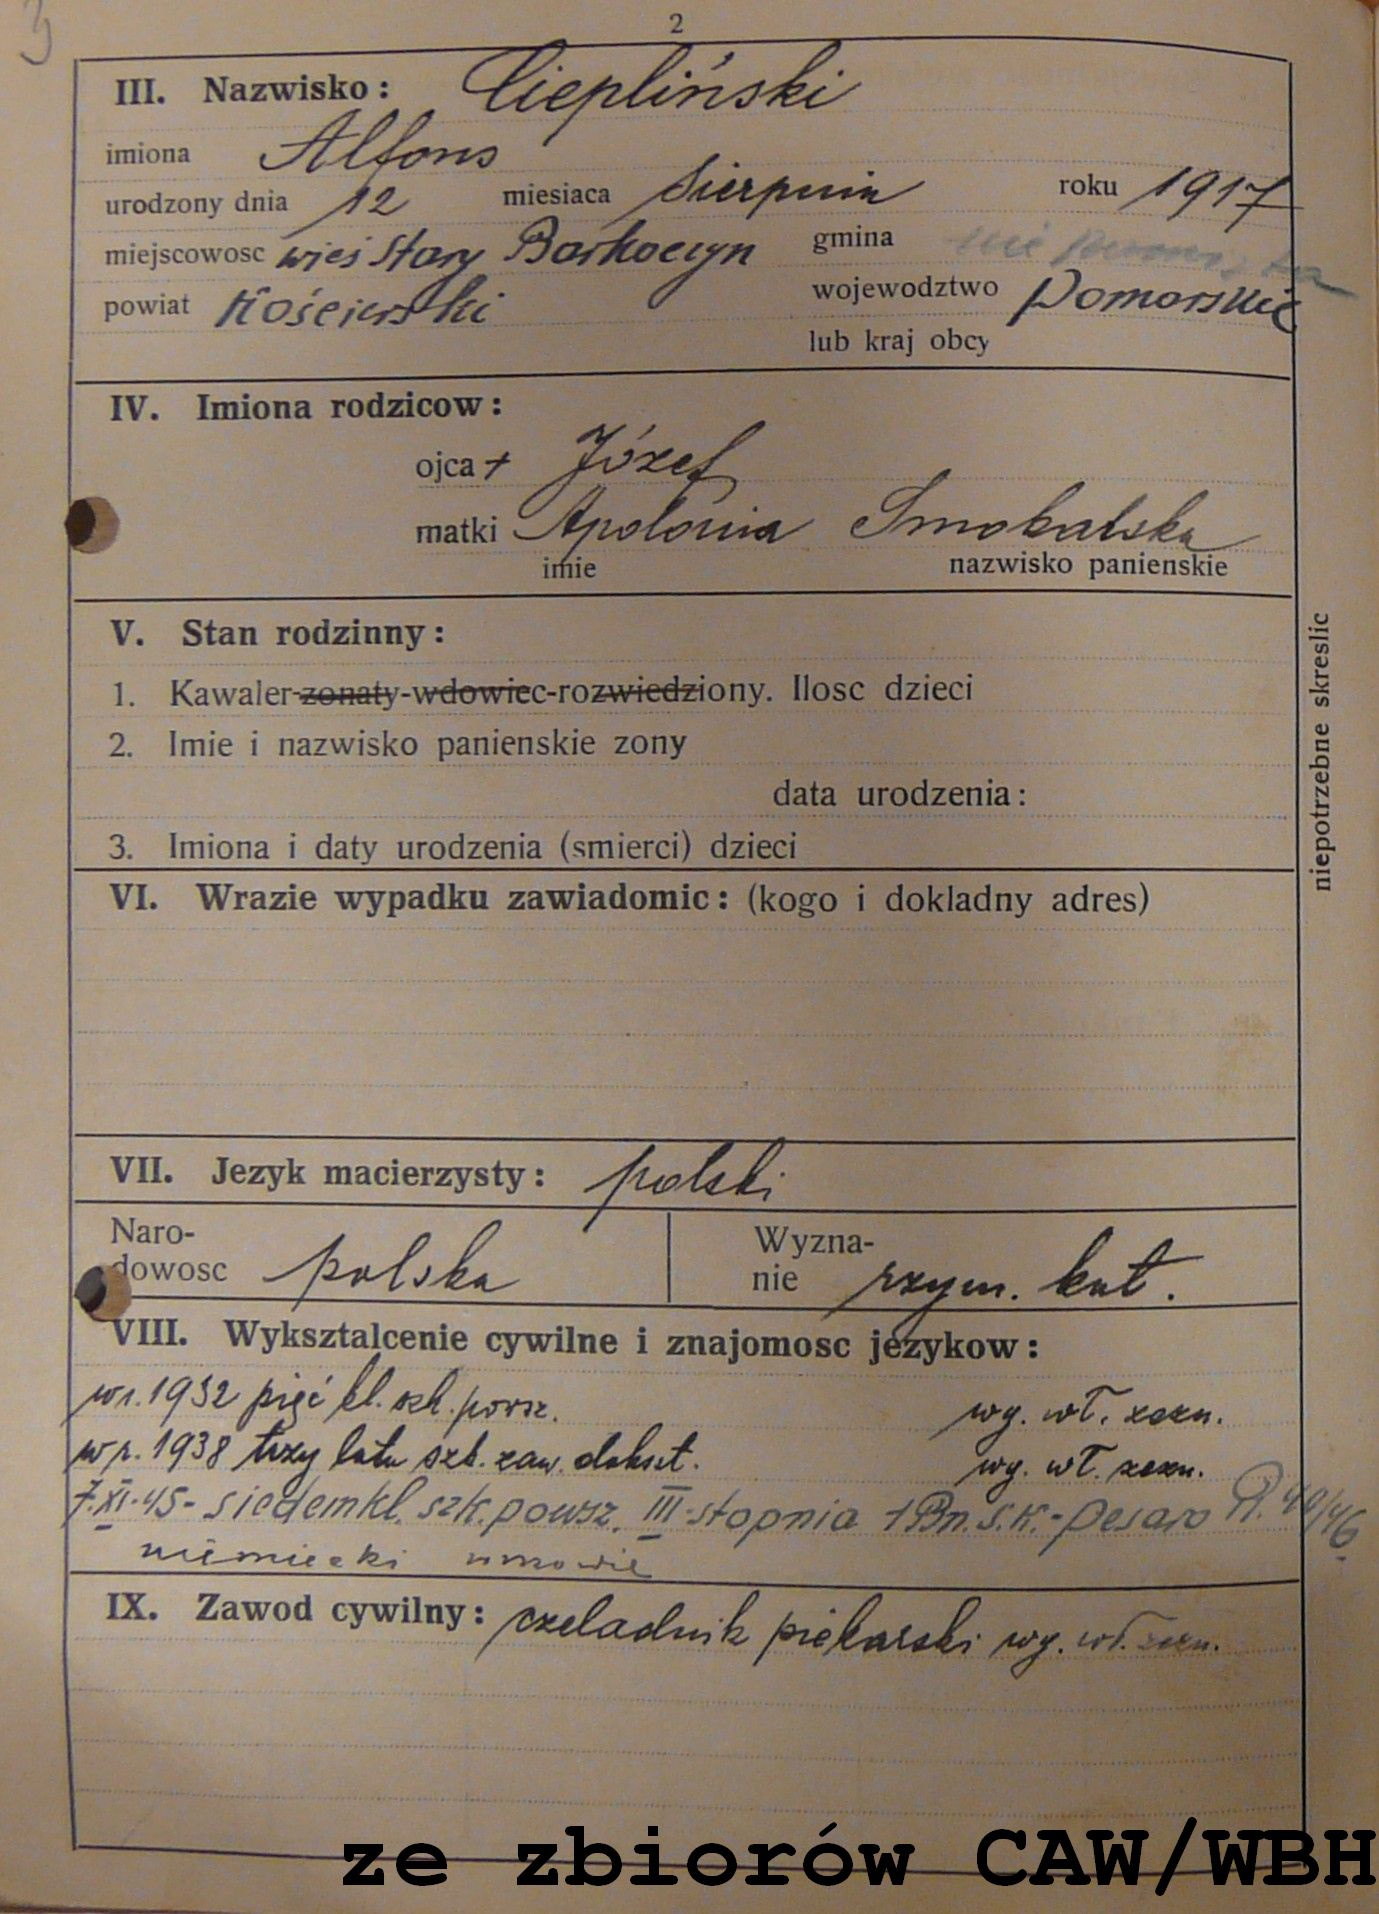 3
2
III. Nazwisko: Ciepliński
imiona Alfons
urodzony dnia 12 miesiaca Sierpnia roku 1917
miejscowosc wieś Stary Barkoczyn gmina nie
powiat Kościerski wojewodztwo Pomorskie
lub kraj obcy
IV. Imiona rodzicow:
ojca + Józef
matki Apolonia Smokalska
imie nazwisko panienskie
V. Stan rodzinny:
1. Kawaler-zonaty-wdowiec-rozwiedziony. Ilosc dzieci
2. Imie i nazwisko panienskie zony
data urodzenia:
3. Imiona i daty urodzenia (smierci) dzieci
niepotrzebne skreslic
VI. Wrazie wypadku zawiadomic: (kogo i dokladny adres)
VII. Jezyk macierzysty: polski
Naro-
dowosc polska
Wyzna-
nie rzym. kat.
VIII. Wyksztalcenie cywilne i znajomosc jezykow:
w r. 1932 pięć kl. szk. powsz. wg. wł. zezn.
w r. 1938 trzy lata szk. zaw. dokszt. wg. wł. zezn.
7.XI.45- siedemkl. szk. powsz. III-stopnia 1 Bn. S.K.-Pesaro R. 40/46
niemiecki
IX. Zawod cywilny: czeladnik piekarski wg. wł. zezn.
ze zbiorów CAW/WBH